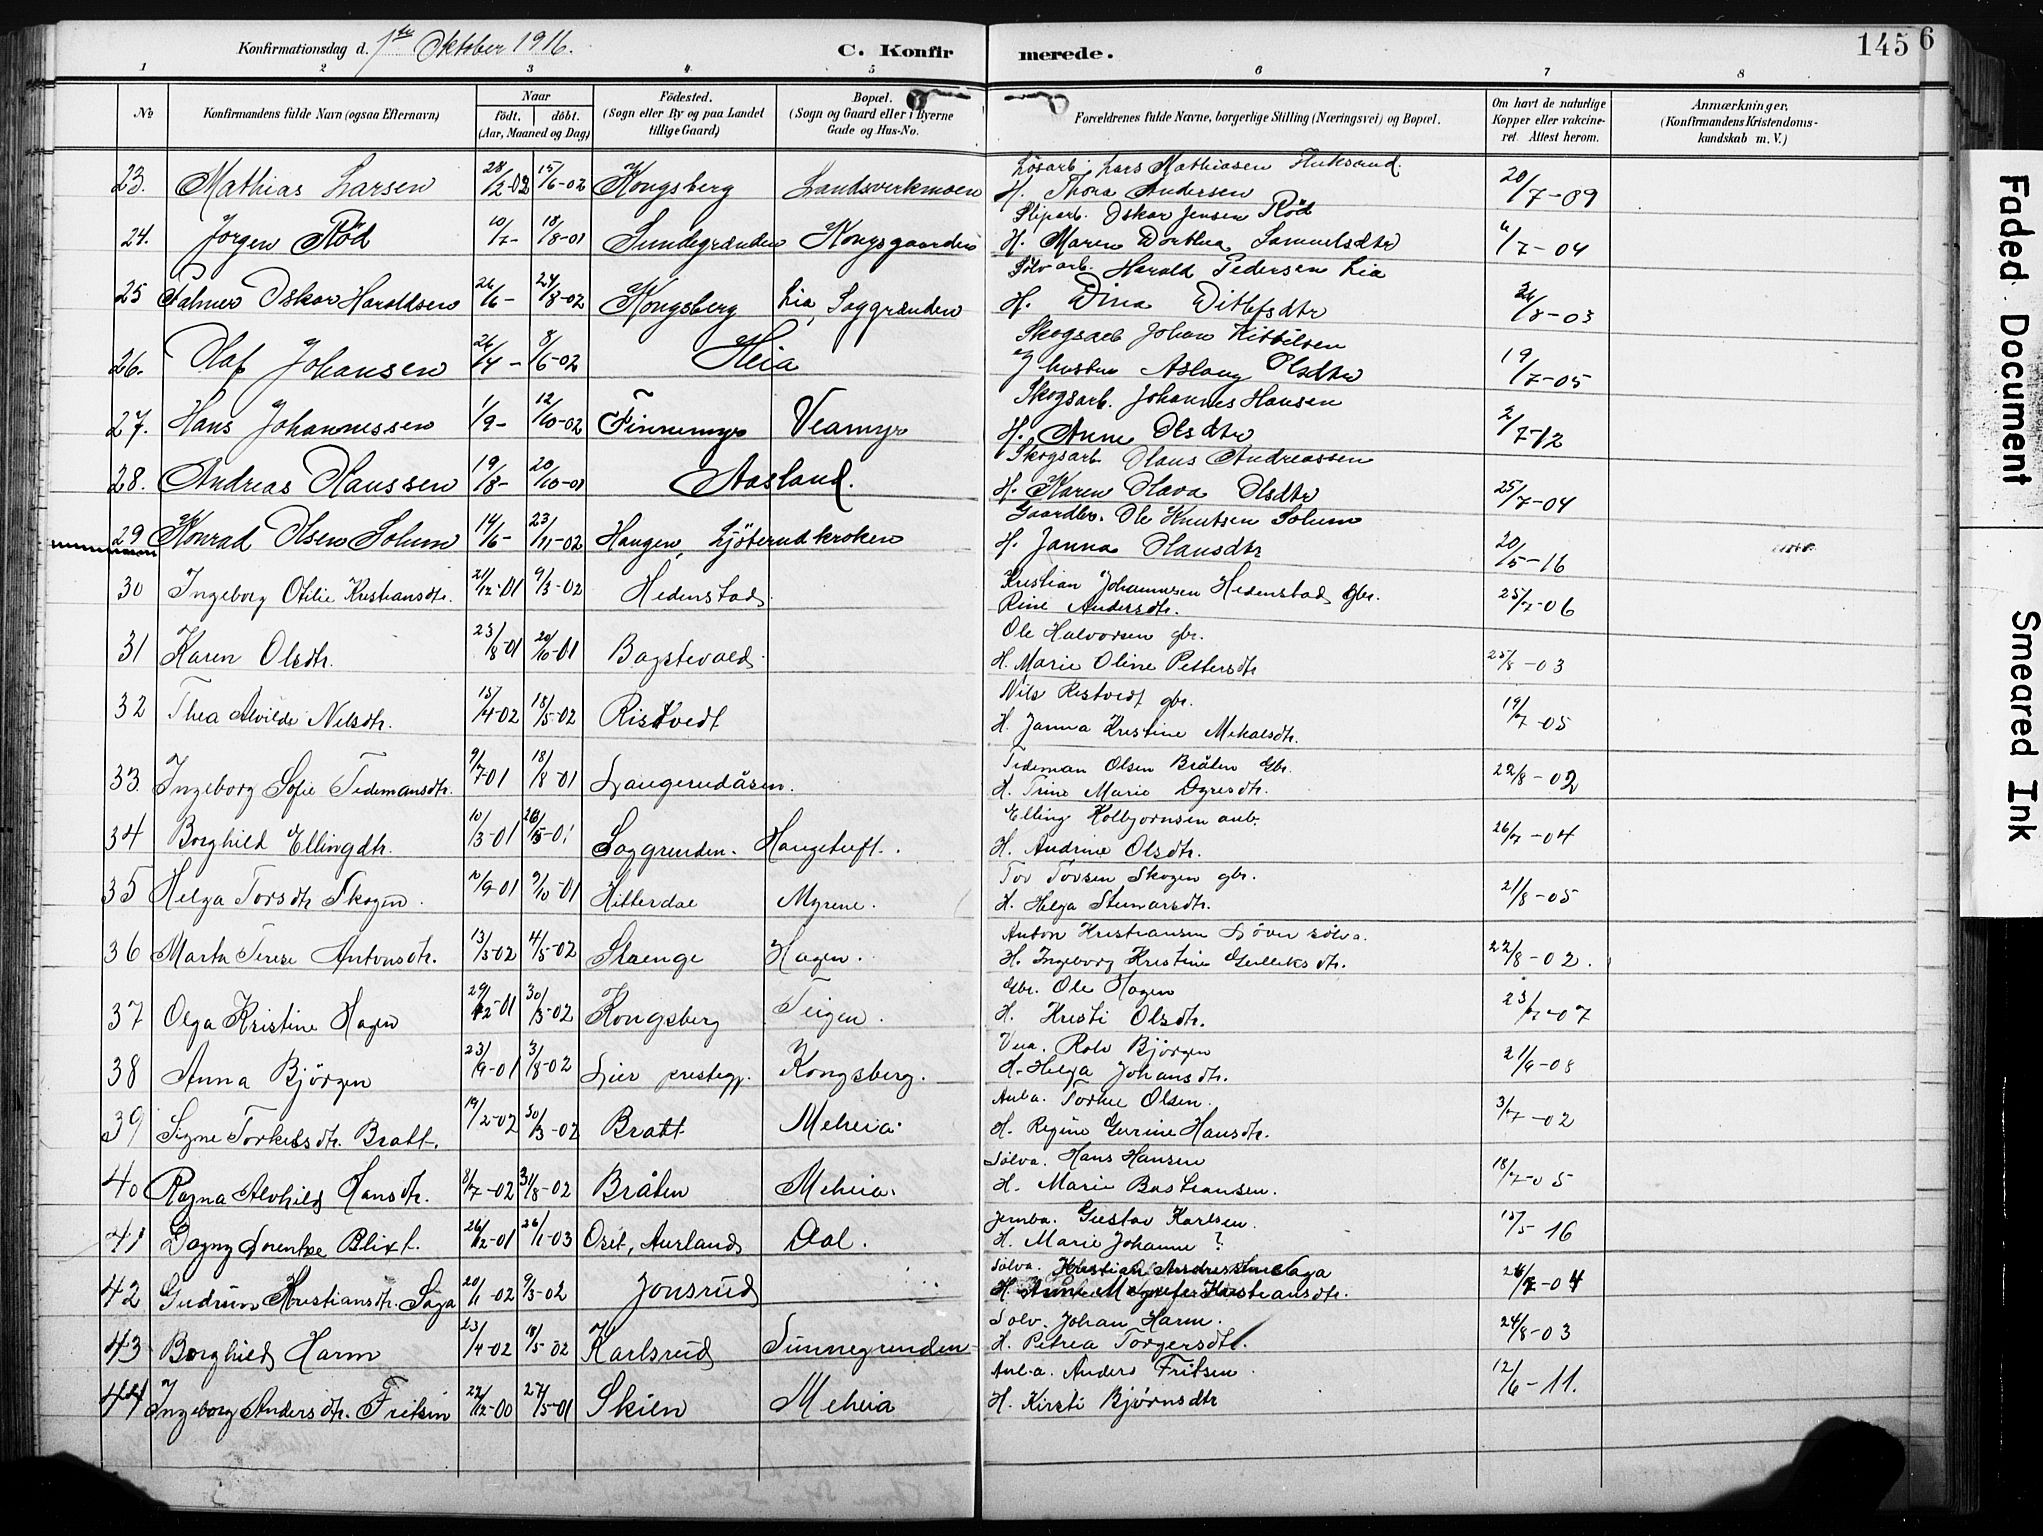 Konfirmationsdag d. 1ste Oktober 1916. C. Konfirmerede. 145 6
1 2 3 4 5 6 7 8
No Konfirmandens fulde Navn (ogsaa Efternavn) Naar født. døbt. (Aar, Maaned og Dag) Fødested. (Sogn eller By og paa Landet tillige Gaard) Bopæl. (Sogn og Gaard eller i Byerne Gade og Hus-No. Forældrenes fulde Navne, borgerlige Stilling (Næringsvei) og Bopæl. Om havt de naturlige Kopper eller vakcineret. Attest herom. Anmærkninger. (Konfirmandens Kristendomskundskab m. V.)
Løsarb. Lars Mathiasen
23. Mathias Larsen 28/2-02 15/6-02 Kongsberg Landsverkmoen H. Thora Andersen 20/7-09
Sliparb. Oskar Jensen Röd
24. Jörgen Röd 10/7- 18/8-01 Kongsgaarden H. Maren Dorthea Samuelsdtr 7-04
Sölvarb. Harald Pedersen Lia
25 Palmer Oskar Haroldsen 26/6- 24/8-02 Kongsberg Lia, Saggrenden H. Dina Ditlefsdtr 8-03
Skogsarb Johan Kittilsen
26. Olaf Johansen 26/4- 8/6-02 Heia hustru Aslaug Olsdtr 19/7-05
Skogsarb. Johannes Hansen
27. Hans Johannessen 1/9- 12/10-02 Finnemyr Veamyr H. Anne Olsdtr 2/7-12
Skogsarb Hans Andreassen
28. Andreas Hanssen 19/8- 20/10-01 Aasland. H. Karen Olava Olsdtr 25/7-04
Gaardbr. Ole Knutsen Solum
29 Konrad Olsen Solum 14/6- 23/11-02 Haugen, Ljöterudkroken H. Janna Hansdtr 20/5-16
Kristian Johannesen Hedenstad gbr.
30 Ingeborg Otilie Kristiansdtr. 21/12-01 9/3-02 Hedenstad Rine Andersdtr. 25/7-06
Ole Halvorsen gbr.
31 Karen Olsdtr. 23/8-01 20/10-01 Bagstevold H. Marie Oline Pettersdtr 25/8-03
Nils Ristvedt gbr.
32 Thea Alvilde Nilsdtr. 15/4-02 18/5-02 Ristvedt H. Janna Kristine Mikalsdtr. 19/7-05
Tideman Olsen Bråten Gbr.
33 Ingeborg Sofie Tidemansdtr. 9/7-01 18/8-01 Langerudåsen. H. Trine Marie Dyresdtr. 22/8-02
Elling Kolbjornsen anb.
34 Borghild Ellingdtr. 10/3-01 Saggrenden. Haugetuft. H. Andrine Olsdtr. 26/7-04
Tov Tovsen Skogen gbr.
35 Helga Torsdtr Skogen. 9-01 9/10-01 Hitterdal Myrene. H. Helga Steinarsdtr. 21/8-05
Anton Kristiansen Löver sölva.
36 Marta Terese Antonsdtr. 13/3-02 4/5-02 Stænge Hagen. H. Ingeborg Kristine Gulliksdtr. 22/8-02.
Gbr. Ole Hagen
37 Olga Kristine Hagen 29/12-01 30/3-02 Kongsberg Teigen. H. Kristi Olsdtr. 23/7-07
Rolv Björgen
38 Anna Björgen 23/9-01 3/8-02 Lier prestegj. Kongsberg. H. Helga Johansdtr. 21/9-08
Anba. Torkel Olsen.
39 Signe Torkelsdtr. Bratt. 19/2-02 30/3-02 Bratt Meheia. H. Regine Gurine Hansdtr. 3/7-02
Sölva. Hans Hansen
40 Ragna Alvhild Hansdtr. 8/7-02 31/8-02 Bråten Meheia. H. Marie Bastiansen. 18/7-05
Jernba. Gustav Karlsen.
41 Dagny Lorentze Blixt. 26/12-01 26/1-03 Oset, Aurland Aal. H. Marie Johanne ? 15/5-16
Sölva. Kristian Andresen Saga
42 Gudrun Kristiansdtr. Saga 20/1-02 9/3-02 Jonsrud H. Kristiansdtr. 7-04
Sölv. Johan Harm.
43 Borghild Harm 23/4-02 5-02 Karlsrud Tunnegrenden H. Petrea Torgersdtr. 24/8-03
Anba. Anders Fritsen
44 Ingeborg Andersdtr. Fritsen 22/12-00 27/5-01 Skien Meheia H. Kirsti Bjørnsdtr 12/6-11.
Faded Document
Smeared Ink